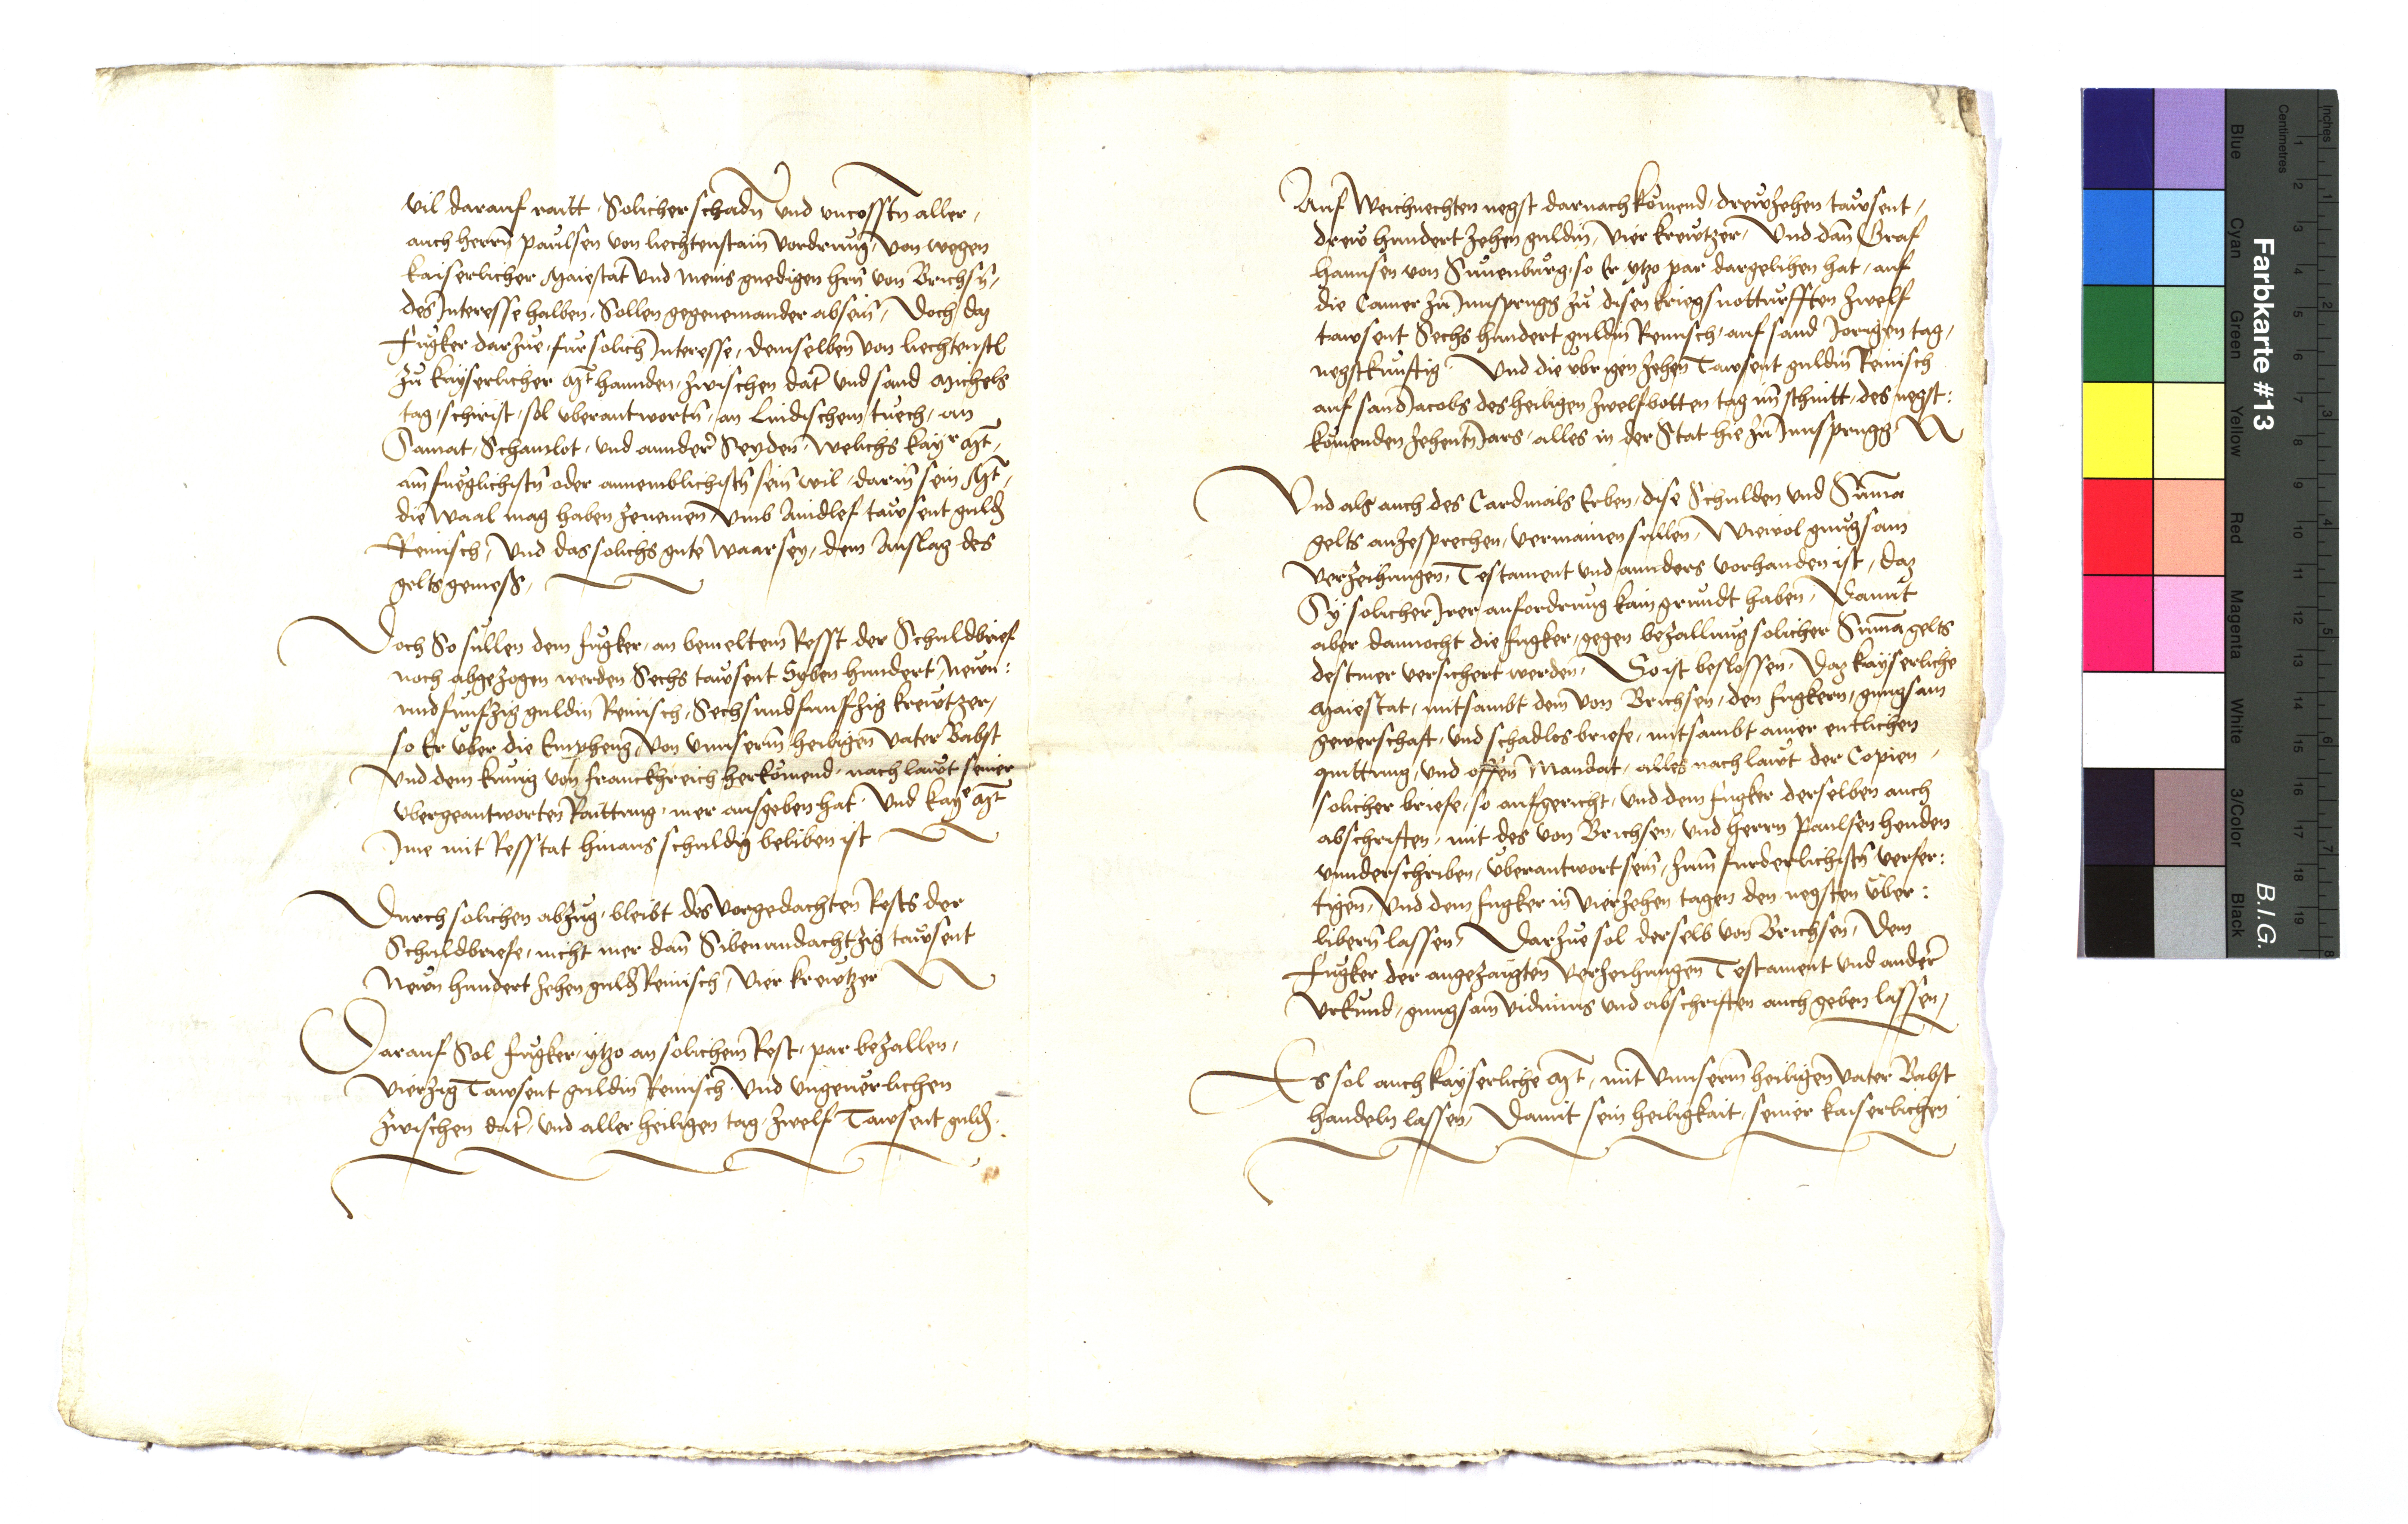 vil darauf raitt, Solicher schadn̄ vnd vncosstn̄ aller,
auch herrn̄ paulsen von liechtenstain vordrung, von wegen
kaiserlicher Maiestat vnd meins gnedigen hrn̄ von Brichsn̄,
des Interesse halben, Sollen gegeneinander absein, Doch daz
Fugker darzue, fur solich Interesse, demselben von liechtenstl
zu kayserlicher Mt hannden, zwischen dat vnd sand Michels
tag, schirist, sol vberantwortn̄, an Lindischem tuech, an
Samat, Schamlot, vnd annder Seyden, Welichs kayr Mt,
am fueglichistn̄ oder annemblichistn̄ sein wil, darin sein Mt,
die Waal mag haben zenemen, vmb Aindlef tawsent guld
Reinisch, Vnd das solichs gute Waar sey, dem Anslag des
gelts gemess,
Doch So sullen dem fugker, an bemeltem Resst der Schuldbrief
noch abgezogen werden Sechs tawsent Syben hundert, Newn:
undfunfzig guldin Reinisch, Sechsundfunffzig krewtzer,
so Er vber die Empheng, von vnnserm heiligen Vater Babst
vnd dem kunig von franckhreich herkomend, nach lawt seiner
vbergeantworten Raittung, mer ausgeben hat, Vnd kaye Mt
Ime mit Resstat hinaus schuldig beliben ist
Durch solichen abzug, bleibt des vorgedachten Rests der
Schuldbriefe, nicht mer dan̄ Sibenundachtzig tawsent
Newn hundert zehen guld Reinisch, Vier krewtzer
Darauf Sol fugker, ytzo an solichem Rest, par bezallen,
Vierzig Tawsent guldin Reinisch, Vnd vngeuerlichen
zwischen dat, vnd aller heiligen tag, zwelf Tawsent guld.
Auf Weichnechten negst darnach komend, drewzehen tawsent,
drew hundert zehen guldin, vier krewtzer, Vnd dan̄ Graf
hannsen von Sunenburg, so Er ytzo par dargelihen hat, auf
die Camer zu Innsprugg zu disen kriegsnotturfften zwelf
tawsent Sechs hundert guldin Reinisch, auf sand Jorigen tag,
negstkunftig, Vnd die vbrigen zehen Tawsent guldin Reinisch
auf sand Jacobs des heiligen zwelfbotten tag im schnitt, des negst:
komenden zehentn̄ Jars, alles in der Stat hie zu Innsprugg
Vnd als auch des Cardinals Erben, dise Schulden vnd Suma
gelts anzesprechen, vermainen sullen, Wiewol gnugsam
verzeihungen, Testament vnd annders vorhanden ist, daz
Sy solicher Irer anfordrung kain grundt haben, Damit
aber dannocht die fugker, gegen bezallung solicher Suma gelts
destmer versichert werden, So ist beslossen, Daz kayserliche
Maiestat, mitsambt dem von Brichsen, den fugkern, gnugsam
gewerschaft, vnd schadlos briefe, mitsambt ainer entlichen
quittung, vnd offen Mandat, alles nach lawt der Copien,
solicher briefe, so aufgericht, vnd dem fugker derselben auch
abschriften, mit des von Brichsen, vnd herrn Paulsen henden
vnnderschriben, vberantwort sein, zum furderlichistn̄ verfer:
tigen, Vnd dem fugker in Vierzehen tagen den negsten vber:
libern̄ lassen, Darzue sol derselb von Brichsen, Dem
Fugker der angezaigten verzeihungen Testament vnd ander
vrkund, gnugsam vidimus vnd abschriften auch geben lassen,
Es sol auch kayserliche Mt, mit vnnserm heiligen Vater Babst
handeln lassen, Damit sein heiligkait, seiner kaiserlichen
Farbkarte #13
B.I.G.
Blue Cyan Green Yellow Red Magenta White 3/Color Black
Inches
Centimetres
1 2 3 4 5 6 7 8 9 10 11 12 13 14 15 16 17 18 19
1 2 3 4 5 6 7 8